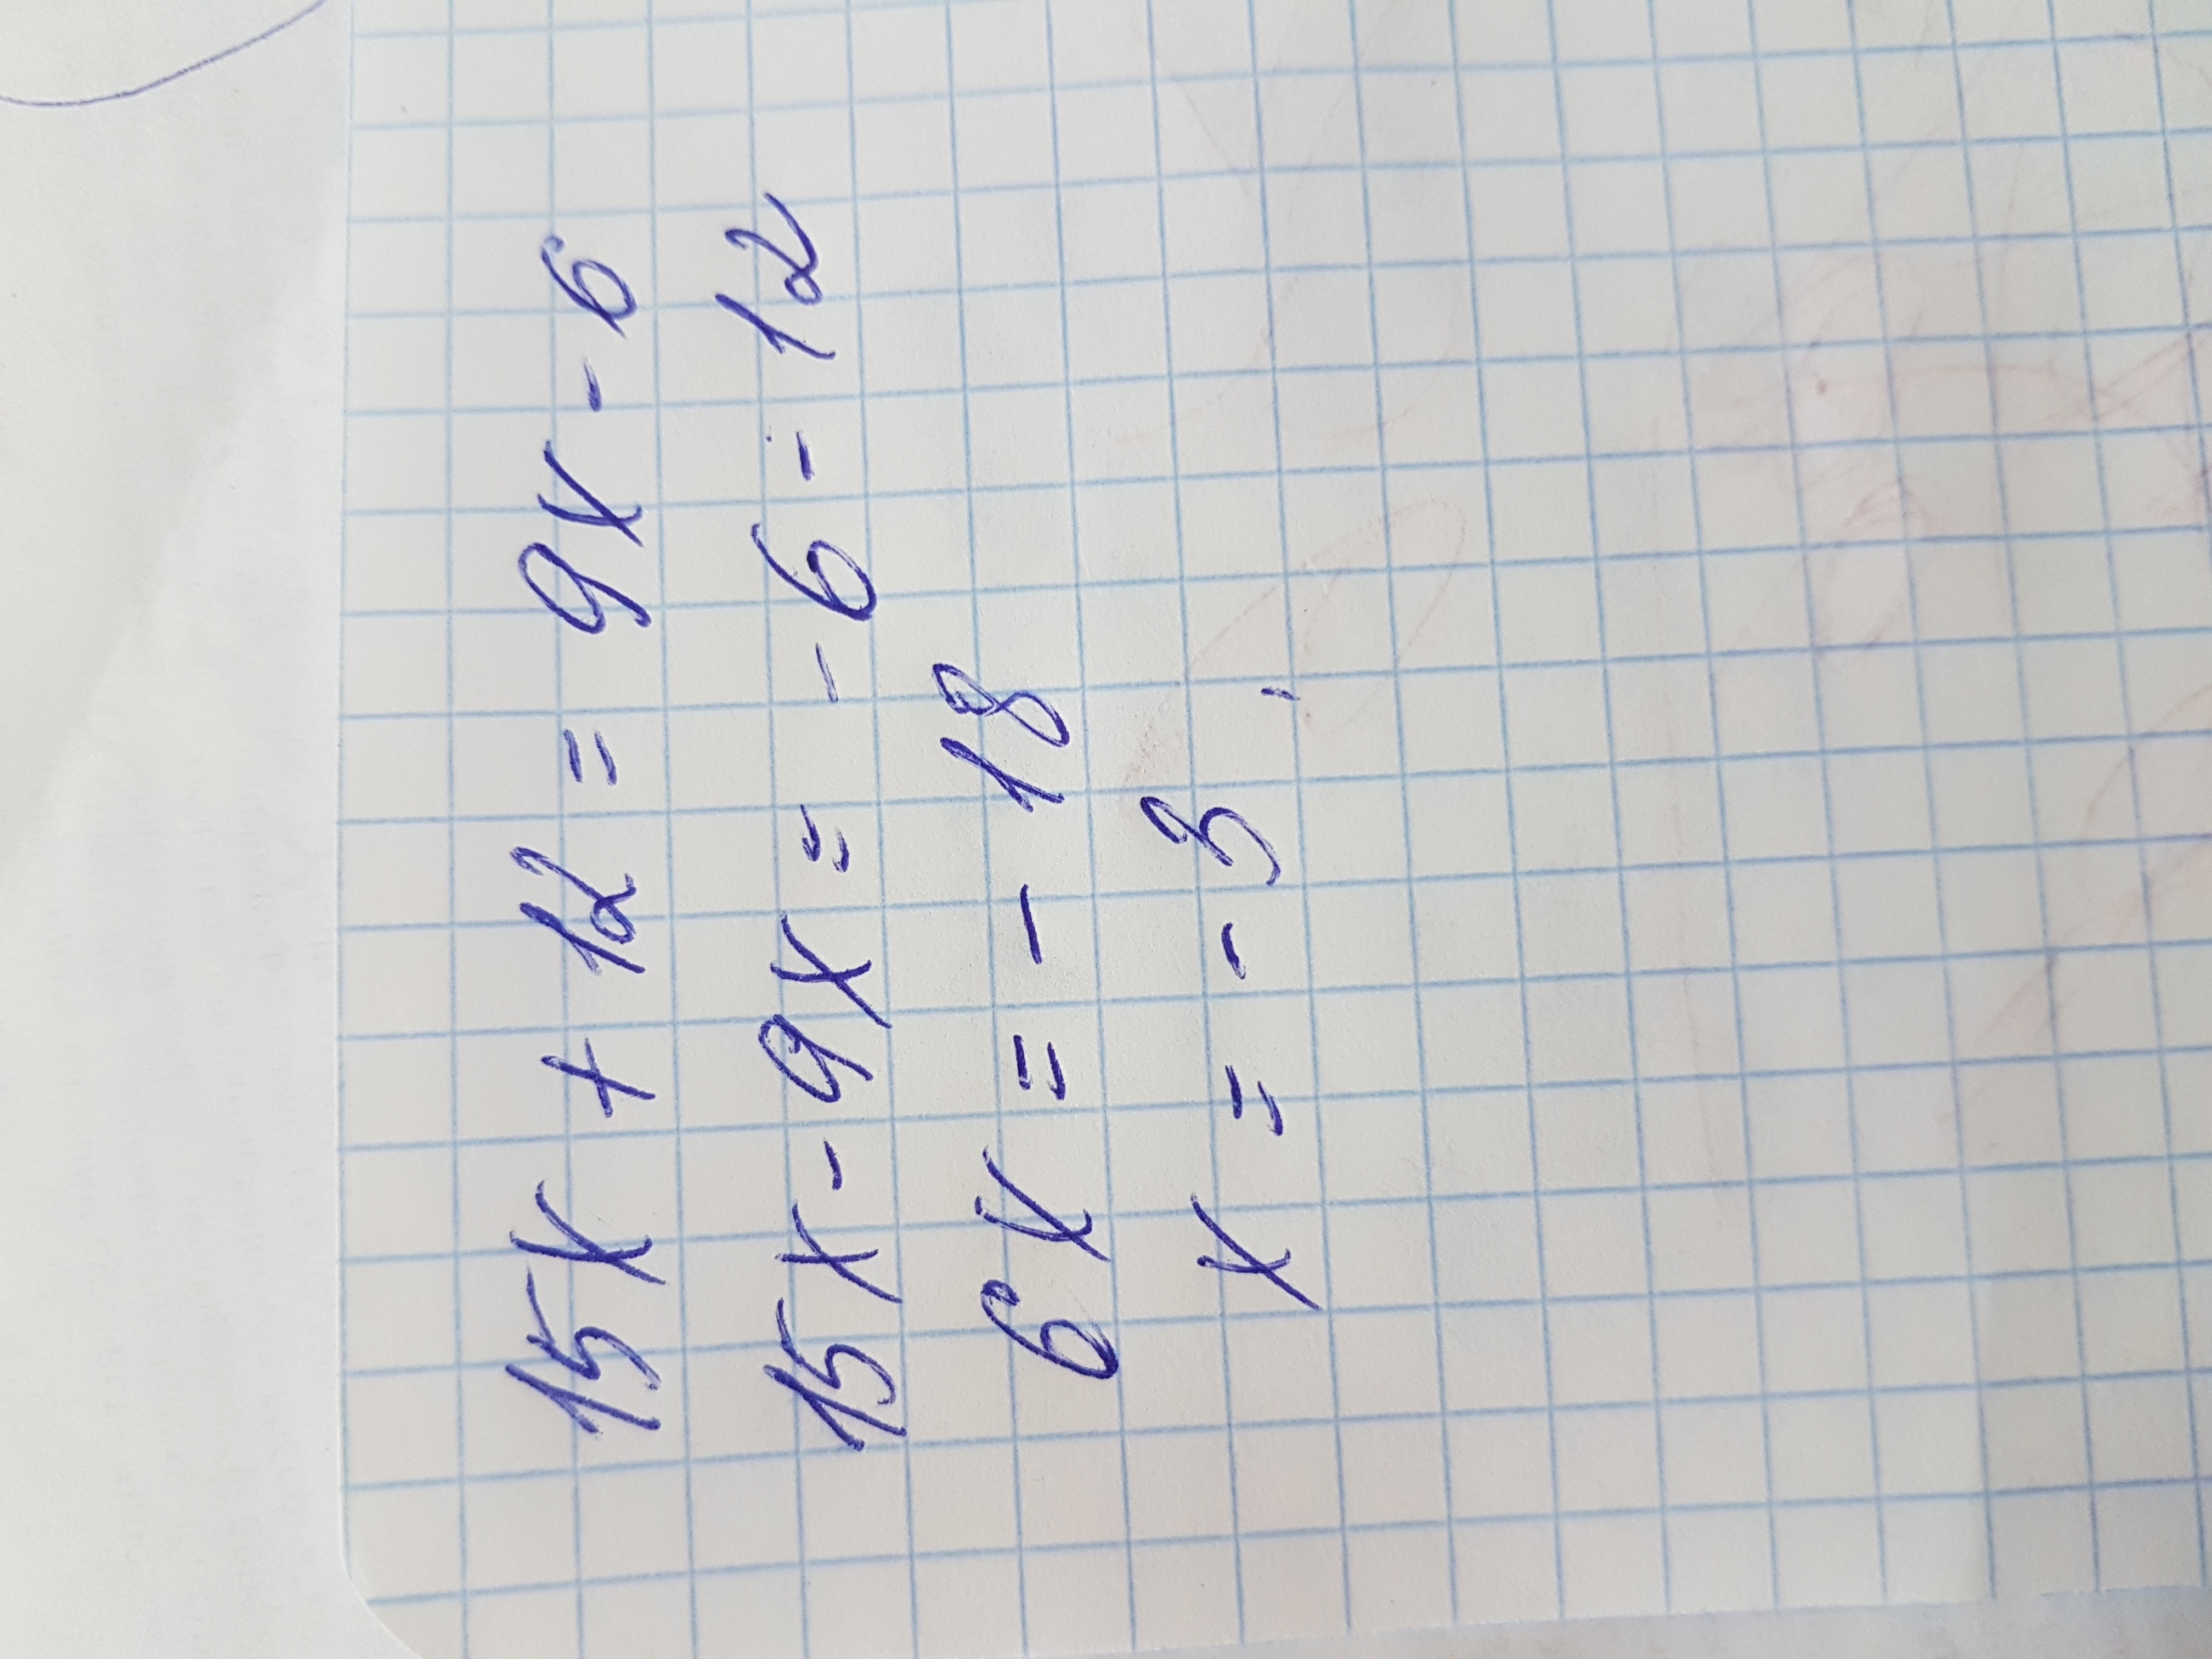 15x + 12 = 9x - 6
15x - 9x = - 6 - 12
6x = - 18
x = - 3